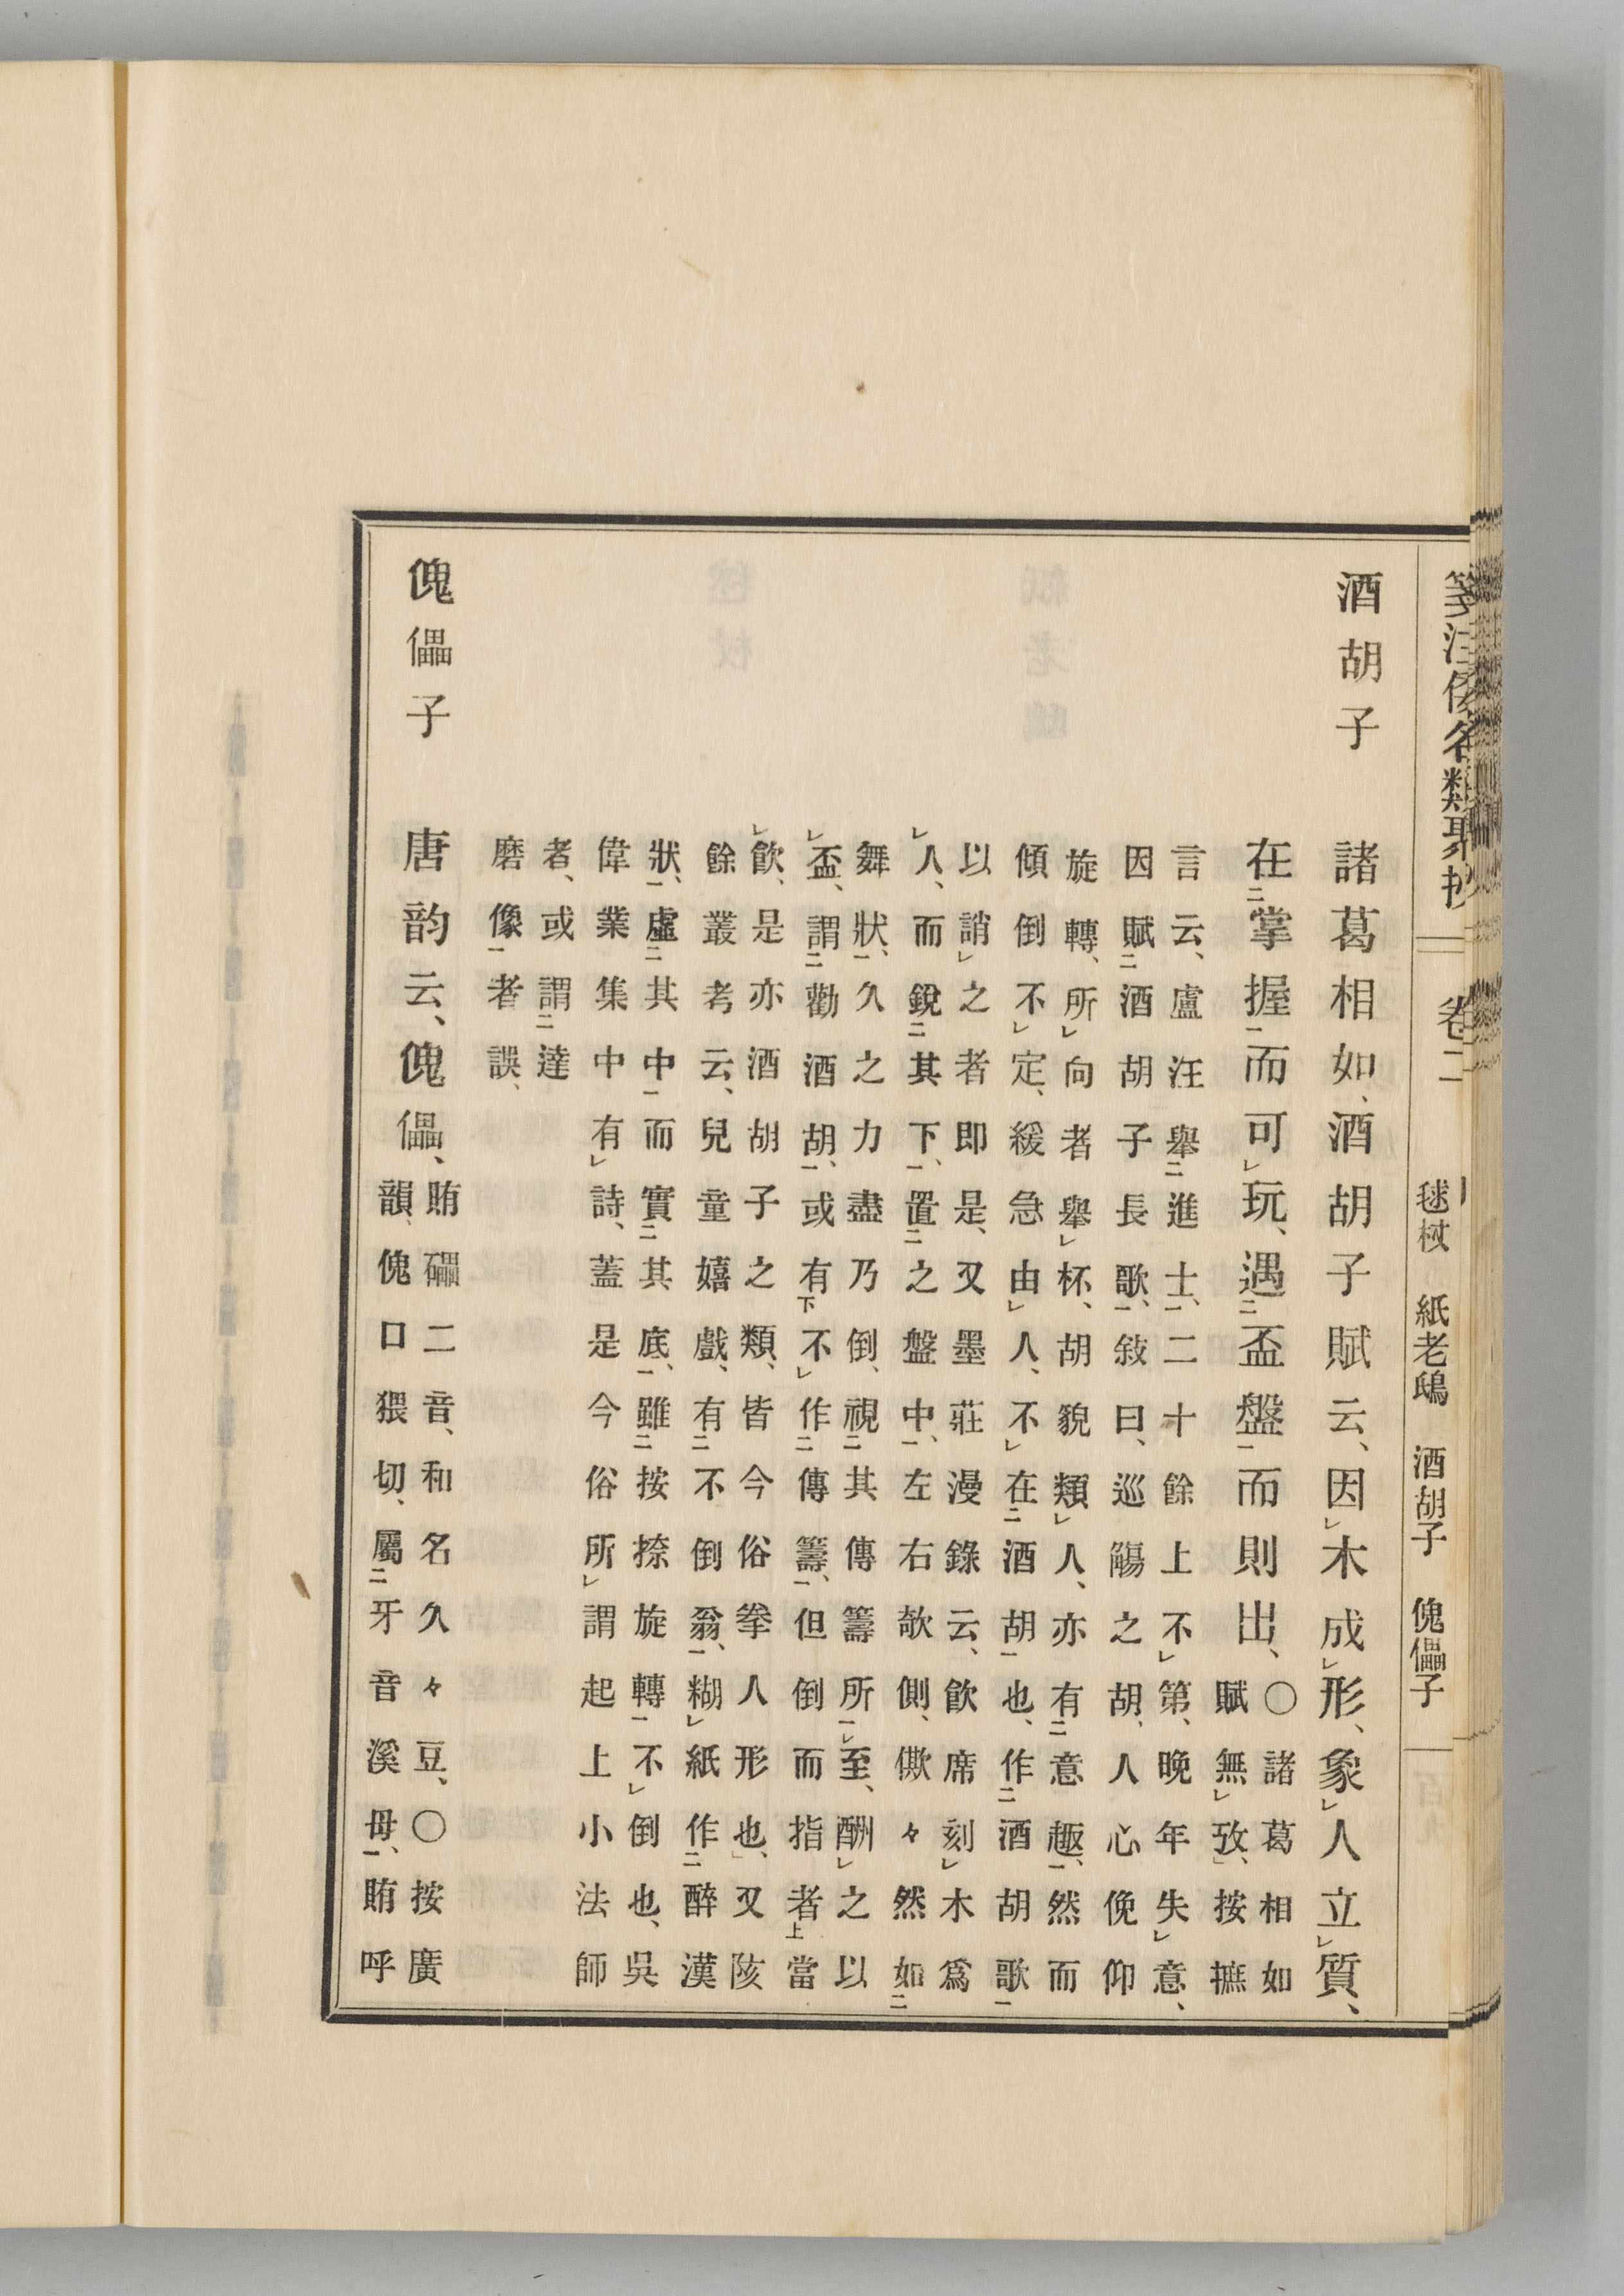 箋注倭名類聚抄 卷二 毬杖 紙老鴟 酒胡子 傀儡子
酒胡子 諸葛相如、酒胡子賦云、因木成形、象人立質、
在掌握而可玩、遇盃盤而則出、○諸葛相如
賦無攷、按摭
言云、盧汪舉進士、二十餘上不第、晚年失意、
因賦酒胡子長歌、敍曰、巡觴之胡、人心俛仰
旋轉、所向者舉杯、胡貌類人、亦有意趣、然而
傾倒不定、緩急由人、不在酒胡也、作酒胡歌
以誚之者即是、又墨莊漫錄云、飮席刻木爲
人、而銳其下、置之盤中、左右欹側、僛々然如
舞狀、久之力盡乃倒、視其傳籌所至、酬之以
盃、謂勸酒胡、或有不作傳籌、但倒而指者當
飮、是亦酒胡子之類、皆今俗拳人形也、又陔
餘叢考云、兒童嬉戲、有不倒翁、糊紙作醉漢
狀、虛其中而實其底、雖按捺旋轉不倒也、吳
偉業集中有詩、蓋是今俗所謂起上小法師
者、或謂達
磨像者誤、
傀儡子 唐韵云、傀儡、賄礧二音、和名久々豆、○按廣
韻、傀口猥切、屬牙音溪母、賄呼